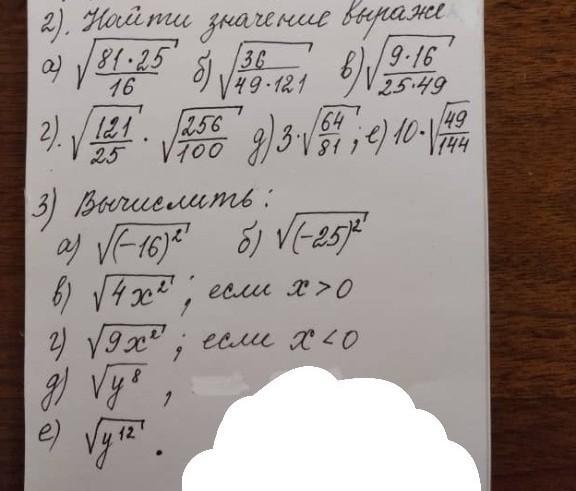 2). Найти значение выраже
а) √(81·25/16) б) √(36/(49·121)) в) √(9·16/(25·49))
г). √(121/25) · √(256/100) д) 3·√(64/81); е) 10·√(49/144)
3) Вычислить:
а) √(-16)² б) √(-25)²
в) √4x²; если x > 0
г) √9x²; если x < 0
д) √y⁸,
е) √y¹².